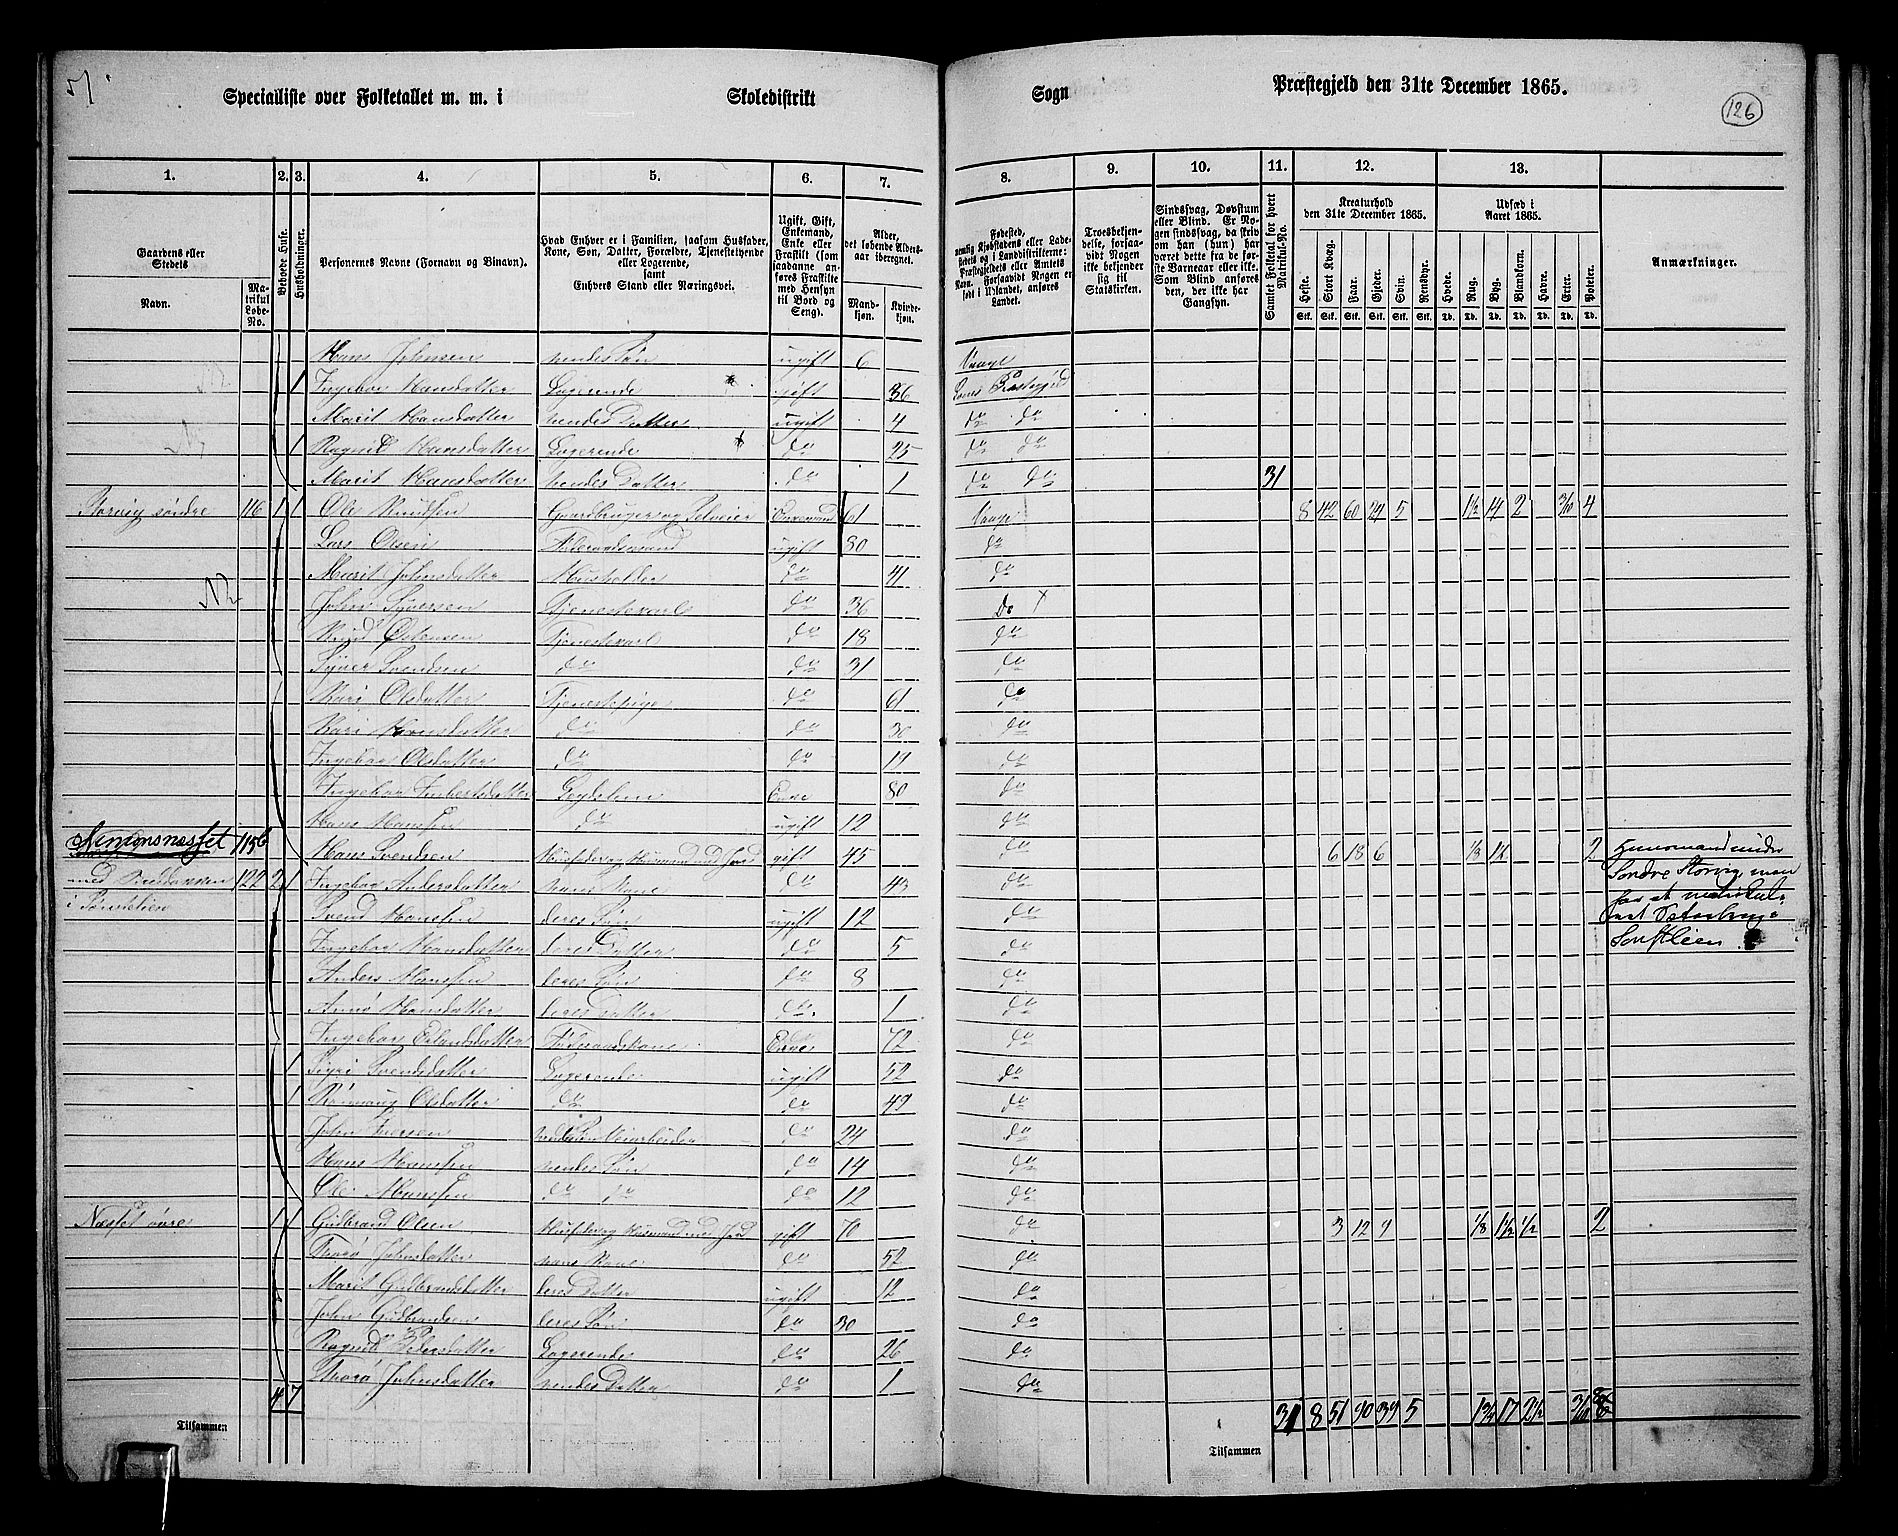 Specialliste over Folketallet m. m. i Skoledistrikt Sogn Præstegjeld den 31te December 1865.
126
1. 2. 3. 4. 5. 6. 7. 8. 9. 10. 11. 12. 13.
Gaardens eller Stedets
Navn.
Matrikul Løbe-No.
Beboede Huse.
Husholdninger.
Personernes Navne (Fornavn og Binavn).
Hvad Enhver er i Familien, saasom Husfader, Kone, Søn, Datter, Forældre, Tjenestetyende eller Logerende, samt Enhvers Stand eller Næringsvei.
Ugift, Gift, Enkemand, Enke eller Fraskilt (som saadanne anføres Fraskilte med Hensyn til Bord og Seng).
Alder, det løbende Alders-aar iberegnet.
Mandkjøn.
Kvindekjøn.
Fødested, nemlig Kjøbstadens eller Ladestedets og i Landdistrikterne: Præstegjeldets eller Amtets Navn. Forsaavidt Nogen er født i Udlandet, anføres Landet.
Troesbekjendelse, forsaavidt Nogen ikke bekjender sig til Statskirken.
Sindssvag, Døvstum eller Blind. Er Nogen sindssvag, da skrives om han (hun) har været dette fra de første Barneaar eller ikke. Som Blind anføres den, der ikke har Gangsyn.
Samlet Folketal for hvert Matrikul-No.
Kreaturhold den 31te December 1865.
Heste. Stort Kvæg. Faar. Gjeder. Svin. Rensdyr.
Udsæd i Aaret 1865.
Hvede. Rug. Byg. Blandkorn. Havre. Erter. Poteter.
Anmærkninger.
Hans Johnsen hendes Søn ugift 6 Vaage
1 Ingebor Hansdatter Logerende gift 36 Præstegjeld
Marit Hansdatter hendes Datter ugift 4 do do
1 Ragnil Hansdatter Logerende do 25 do do
Marit Hansdatter hendes Datter do 1 do do 31
Storvig søndre 116 1 1 Ole Knudsen Gaardbruger og Selveier Enkemand 61 Vaage 8 42 60 24 5 1½ 14 2 3/10 4
Lars Olsen Føderaadsmand ugift 80 do
Marit Johnsdatter Husholder do 41 do
John Syversen Tjenestekarl do 36 Do
Knud Østensen Tjenestekarl do 18 do
Syver Svendsen do do 31 do
Kari Olsdatter Tjenestepige do 61 do
Kari Hansdatter do do 30 do
Ingebor Olsdatter do do 19 do
Ingebor Enke 80 do
Hans Hansen do ugift 12 do
115b Hans Svendsen Husfader og Husmand med Jord gift 45 do 6 18 6 1/8 2
122 2 1 Ingebor Andersdatter hans Kone do 43 do
Svend Hansen deres Søn ugift 12 do
Ingebor Hansdatter deres Datter do 5 do
Anders Hansen deres Søn do 8 do
Anne Hansdatter deres Datter do 1 do
Ingebor Erlandsdatter Føderaadskone Enke 72 do
1 Sigri Svendsdatter Logerende ugift 52 do
1 Rønnaug Olsdatter do do 49 do
John Iversen Veiarbeider do 24 do
Hans Hansen hendes Søn do 14 do
Ole Hansen do do do 12 do
Næsset øvre 1 1 Gudbrand Olsen Husfader og Husmand med Jord gift 70 do 3 12 9 1/8 1½ ½ 2
Thorø Johnsdatter hans Kone do 57 do
Marit Gudbrandsdatter deres Datter ugift 12 do
John Gudbrandsen deres Søn do 30 do
Ragnild Pedersdatter Logerende do 26 do
Thorø Johnsdatter hendes Datter do 1 do
Husmand under
Søndre Storvig men
har et matrikul-
Tilsammen 4 7
Tilsammen 31 8 51 90 39 5 1¾ 17 2½ 3/10 8